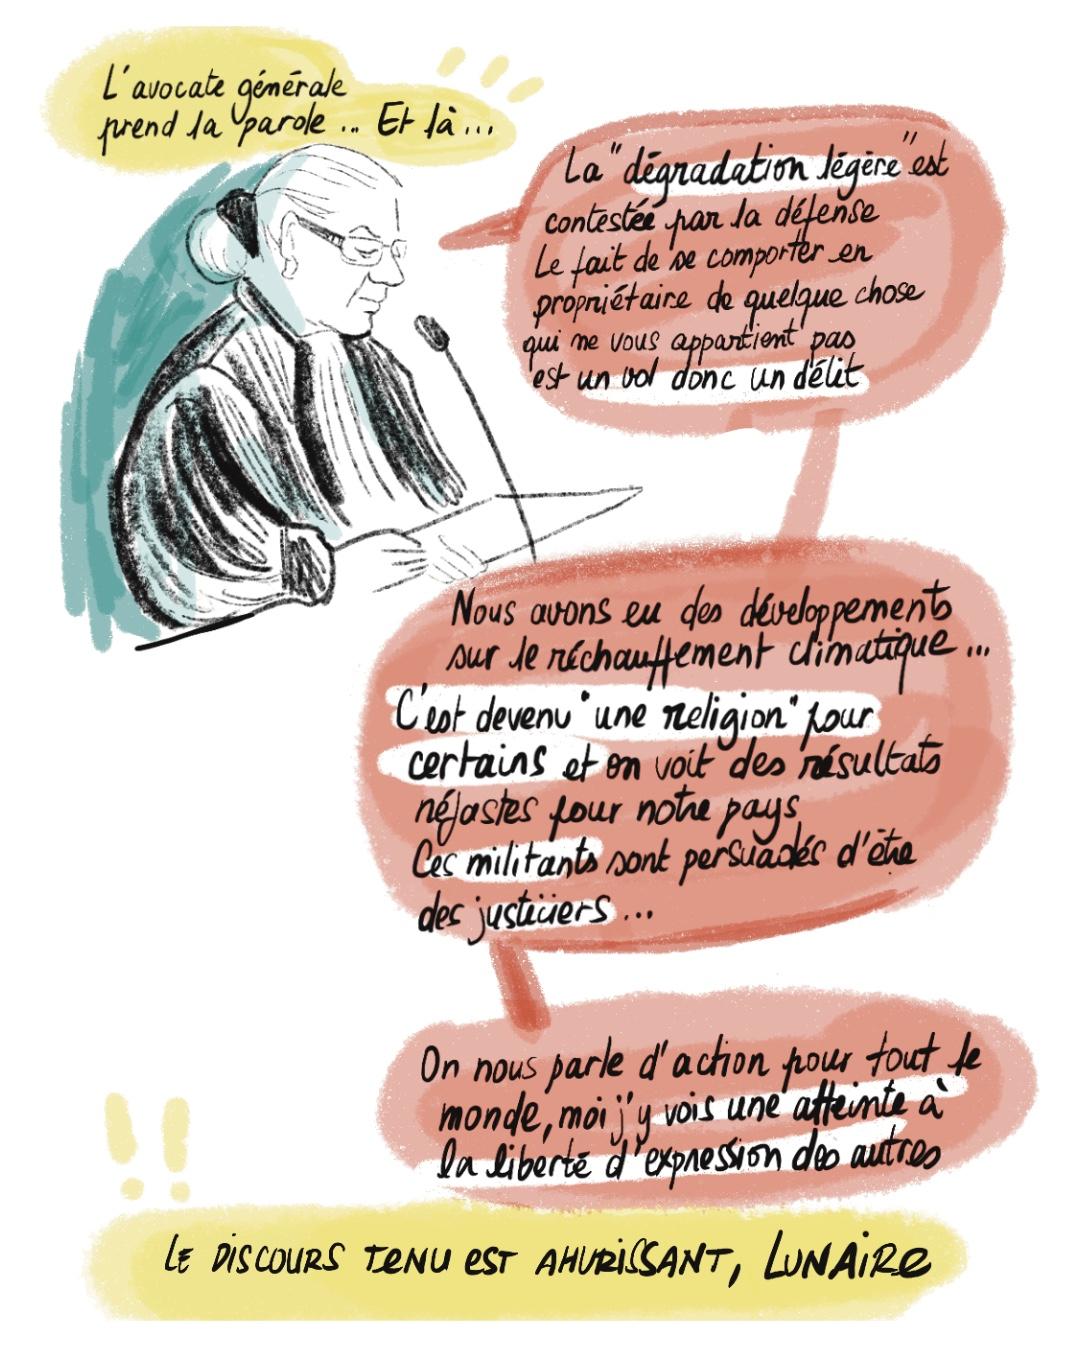 L'avocate générale
prend la parole... Et là...
La "dégradation légère" est
contestée par la défense
Le fait de se comporter en
propriétaire de quelque chose
qui ne vous appartient pas
est un vol donc un délit
Nous avons eu des développements
sur le réchauffement climatique...
C'est devenu "une religion" pour
certains et on voit des résultats
néfastes pour notre pays
Ces militants sont persuadés d'être
des justiciers...
On nous parle d'action pour tout le
monde, moi j'y vois une atteinte à
la liberté d'expression des autres
!!
LE DISCOURS TENU EST AHURISSANT, LUNAIRE